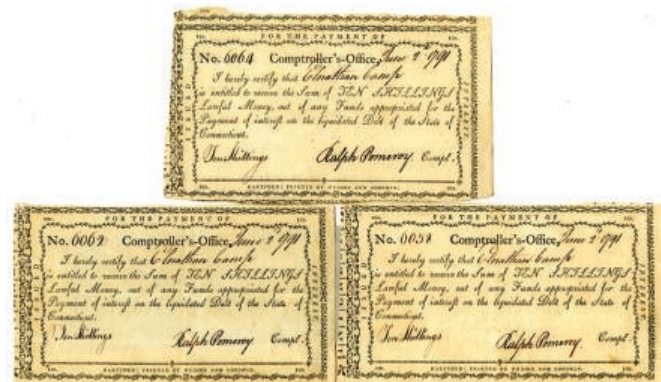 FOR THE PAYMENT OF
ISSUED
INTEREST
No. 6064 Comptroller's-Office, June 2 1791
I hereby certify that Elnathan Camp
is entitled to receive the Sum of TEN SHILLINGS
Lawful Money, out of any Funds appropriated for the
Payment of interest on the liquidated Debt of the State of
Connecticut.
Ten Shillings Ralph Pomeroy Compt.
HARTFORD: PRINTED BY HUDSON AND GOODWIN.
FOR THE PAYMENT OF
ISSUED
INTEREST
No. 6062 Comptroller's-Office, June 2 1791
I hereby certify that Elnathan Camp
is entitled to receive the Sum of TEN SHILLINGS
Lawful Money, out of any Funds appropriated for the
Payment of interest on the liquidated Debt of the State of
Connecticut.
Ten Shillings Ralph Pomeroy Compt.
HARTFORD: PRINTED BY HUDSON AND GOODWIN.
FOR THE PAYMENT OF
ISSUED
INTEREST
No. 6058 Comptroller's-Office, June 2 1791
I hereby certify that Elnathan Camp
is entitled to receive the Sum of TEN SHILLINGS
Lawful Money, out of any Funds appropriated for the
Payment of interest on the liquidated Debt of the State of
Connecticut.
Ten Shillings Ralph Pomeroy Compt.
HARTFORD: PRINTED BY HUDSON AND GOODWIN.